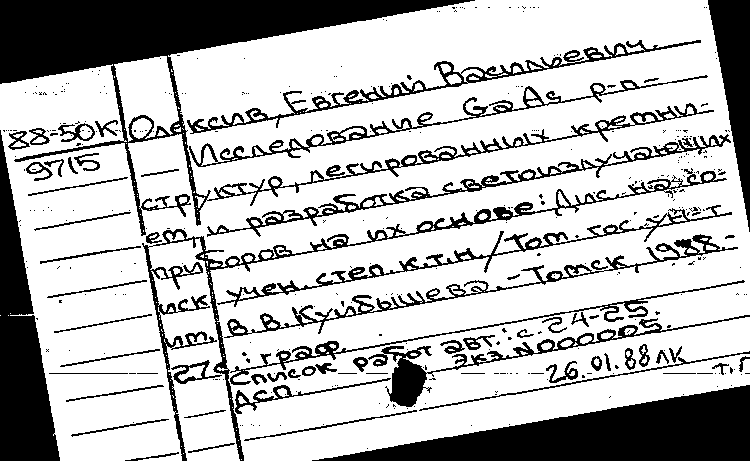 88-50К
9715
Олексив, Евгений Васильевич.
Исследование GaAs p-n-
структур, легированных кремни-
ем, и разработка светоизлучающих
приборов на их основе: Дис. на со-
иск. учен. степ. к.т.н. / Том. гос. ун-т
им. В.В. Куйбышева. – Томск, 1988. –
27с.: граф.
Список работ авт.: с. 24-25.
ДСП. Экз. N000005.
26.01.88 ЛК